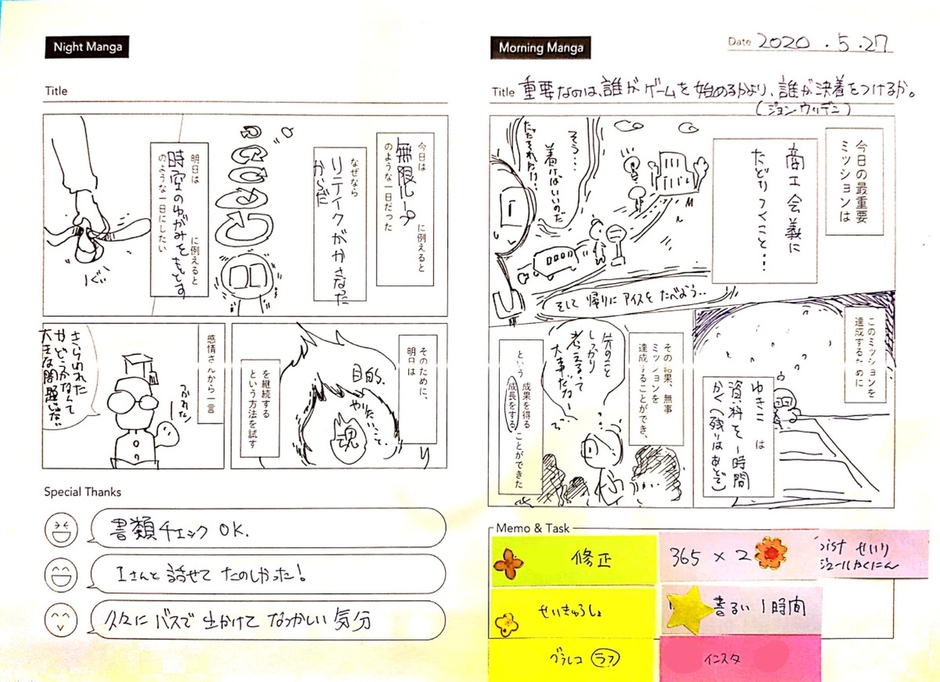 Night Manga
Title
今日は
無限ループ
に例えると
のような一日だった
なぜなら
リテイクがかさなった
からだ
明日は
時空のゆがみをもどす
に例えると
のような一日にしたい
ぐぃ
そのために、
明日は
目的、
やりたいこと、
魂
を継続する
という方法を試す
感情さんから一言
きらわれた
やどうかなんて
大きな問題じゃない
Special Thanks
書類チェック OK.
Iさんと話せて たのしかった!
久々に バスで 出かけて なつかしい 気分
Morning Manga
Date 2020 . 5 . 27
Title 重要なのは、誰がゲームを始めるかより、誰が決着をつけるか。
(ジョン・ウッデン)
今日の最重要
ミッションは
商工会議に
たどりつくこと・・・
そう・・
着けばいいのだ
たったそれだけ!!
そして 帰りに アイスを たべよう・・
このミッションを
達成するために
ゆきこ は
資料を1時間
かく(残りはあとで)
その結果、無事
ミッションを
達成することができ、
先のこと
しっかり
考えるって
大事だな〜
という
成果を得る
成長をする
ことができた
Memo & Task
修正
せいきゅうしょ
グラレコ ラフ
365 × 2
list せいり
ジュールかくにん
書るい 1時間
インスタ